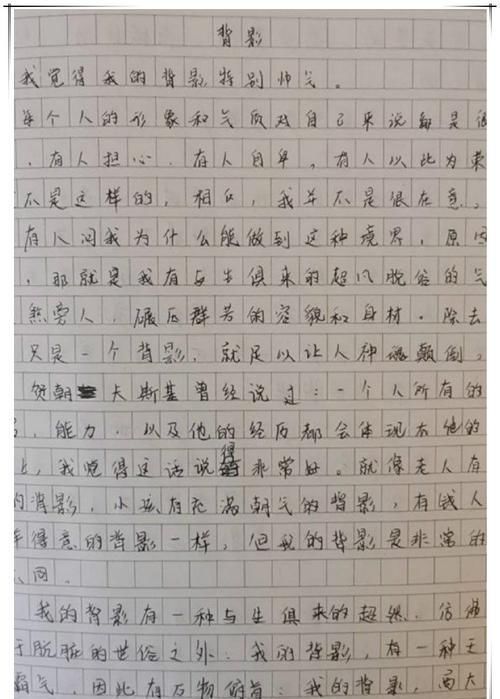 背影
我觉得我的背影特别帅气。
每个人的形象和气质对自己来说每是很
，有人担心，有人自卑，有人以此为荣
不是这样的，相反，我并不是很在意。
有人问我为什么能做到这种境界，原因
，那就是我有与生俱来的超凡脱俗的气
煞旁人，碾压群芳的容貌和身材。除去
只是一个背影，就足以让人神魂颠倒，
贺朝夫斯基曾经说过：一个人所有的
，能力，以及他的经历都会体现在他的
上，我觉得这话说得非常好。就像老人有
的背影，小孩有充满朝气的背影，有钱人
得意的背影一样，但我的背影是非常的
同。
我的背影有一种与生俱来的超然，仿佛
于肮脏的世俗之外。我的背影，有一种王
霸气，因此有万物俯首；我的背影，高大